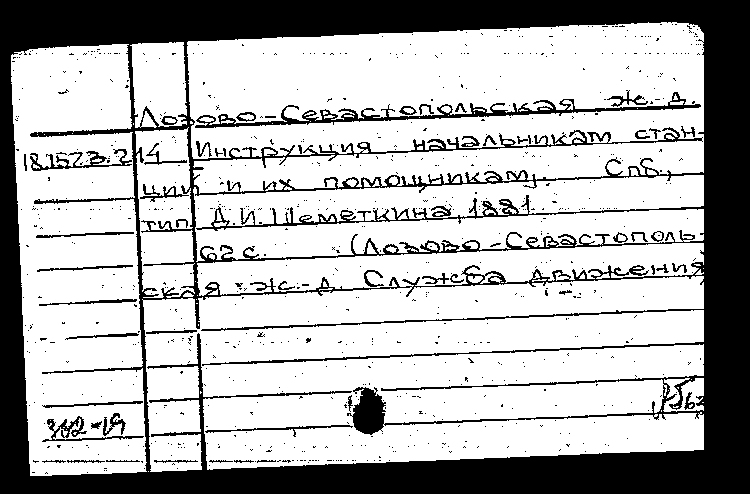 Лозово-Севастопольская ж.-д.
18.1523.214 Инструкция начальникам стан-
ций и их помощникам. Спб.,
тип. Д.И. Шеметкина, 1881.
62 с. (Лозово-Севастополь-
ская ж.-д. Служба движения
342-19